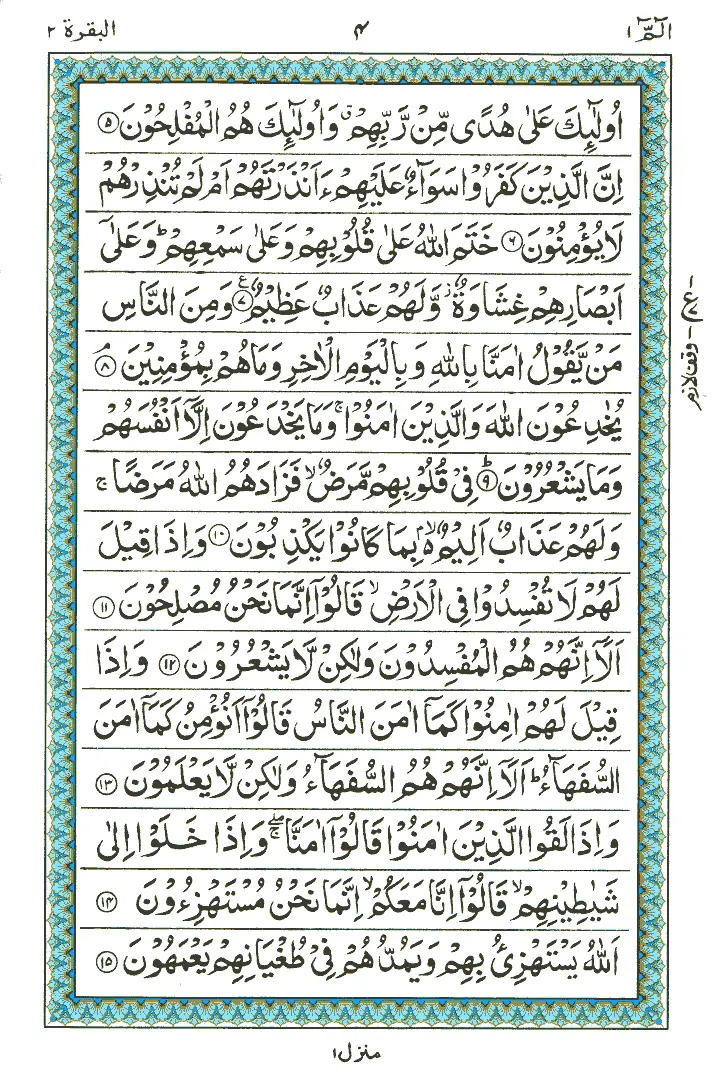 الٓمّٓ ١ ۴ البقرة ٢
اُولٰٓئِكَ عَلٰى هُدًى مِّنْ رَّبِّهِمْ ۗ وَاُولٰٓئِكَ هُمُ الْمُفْلِحُوْنَ ۝۵
اِنَّ الَّذِيْنَ كَفَرُوْا سَوَآءٌ عَلَيْهِمْ ءَاَنْذَرْتَهُمْ اَمْ لَمْ تُنْذِرْهُمْ
لَا يُؤْمِنُوْنَ ۝۶ خَتَمَ اللّٰهُ عَلٰى قُلُوْبِهِمْ وَعَلٰى سَمْعِهِمْ ؕ وَعَلٰٓى
اَبْصَارِهِمْ غِشَاوَةٌ ؗ وَّلَهُمْ عَذَابٌ عَظِيْمٌ ۝۷ ع وَمِنَ النَّاسِ
مَنْ يَّقُوْلُ اٰمَنَّا بِاللّٰهِ وَبِالْيَوْمِ الْاٰخِرِ وَمَا هُمْ بِمُؤْمِنِيْنَ ۝۸ۘ
يُخٰدِعُوْنَ اللّٰهَ وَالَّذِيْنَ اٰمَنُوْا ۚ وَمَا يَخْدَعُوْنَ اِلَّآ اَنْفُسَهُمْ
وَمَا يَشْعُرُوْنَ ۝۹ؕ فِيْ قُلُوْبِهِمْ مَّرَضٌ ۙ فَزَادَهُمُ اللّٰهُ مَرَضًا ج
وَلَهُمْ عَذَابٌ اَلِيْمٌ ۢ ۙ بِمَا كَانُوْا يَكْذِبُوْنَ ۝۱۰ وَاِذَا قِيْلَ
لَهُمْ لَا تُفْسِدُوْا فِي الْاَرْضِ ۙ قَالُوْٓا اِنَّمَا نَحْنُ مُصْلِحُوْنَ ۝۱۱
اَلَآ اِنَّهُمْ هُمُ الْمُفْسِدُوْنَ وَلٰكِنْ لَّا يَشْعُرُوْنَ ۝۱۲ وَاِذَا
قِيْلَ لَهُمْ اٰمِنُوْا كَمَآ اٰمَنَ النَّاسُ قَالُوْٓا اَنُؤْمِنُ كَمَآ اٰمَنَ
السُّفَهَآءُ ؕ اَلَآ اِنَّهُمْ هُمُ السُّفَهَآءُ وَلٰكِنْ لَّا يَعْلَمُوْنَ ۝۱۳
وَاِذَا لَقُوا الَّذِيْنَ اٰمَنُوْا قَالُوْٓا اٰمَنَّا ۖۚ وَاِذَا خَلَوْا اِلٰى
شَيٰطِيْنِهِمْ ۙ قَالُوْٓا اِنَّا مَعَكُمْ ۙ اِنَّمَا نَحْنُ مُسْتَهْزِءُوْنَ ۝۱۴
اَللّٰهُ يَسْتَهْزِئُ بِهِمْ وَيَمُدُّهُمْ فِيْ طُغْيَانِهِمْ يَعْمَهُوْنَ ۝۱۵
وقف لازم
منزل ١